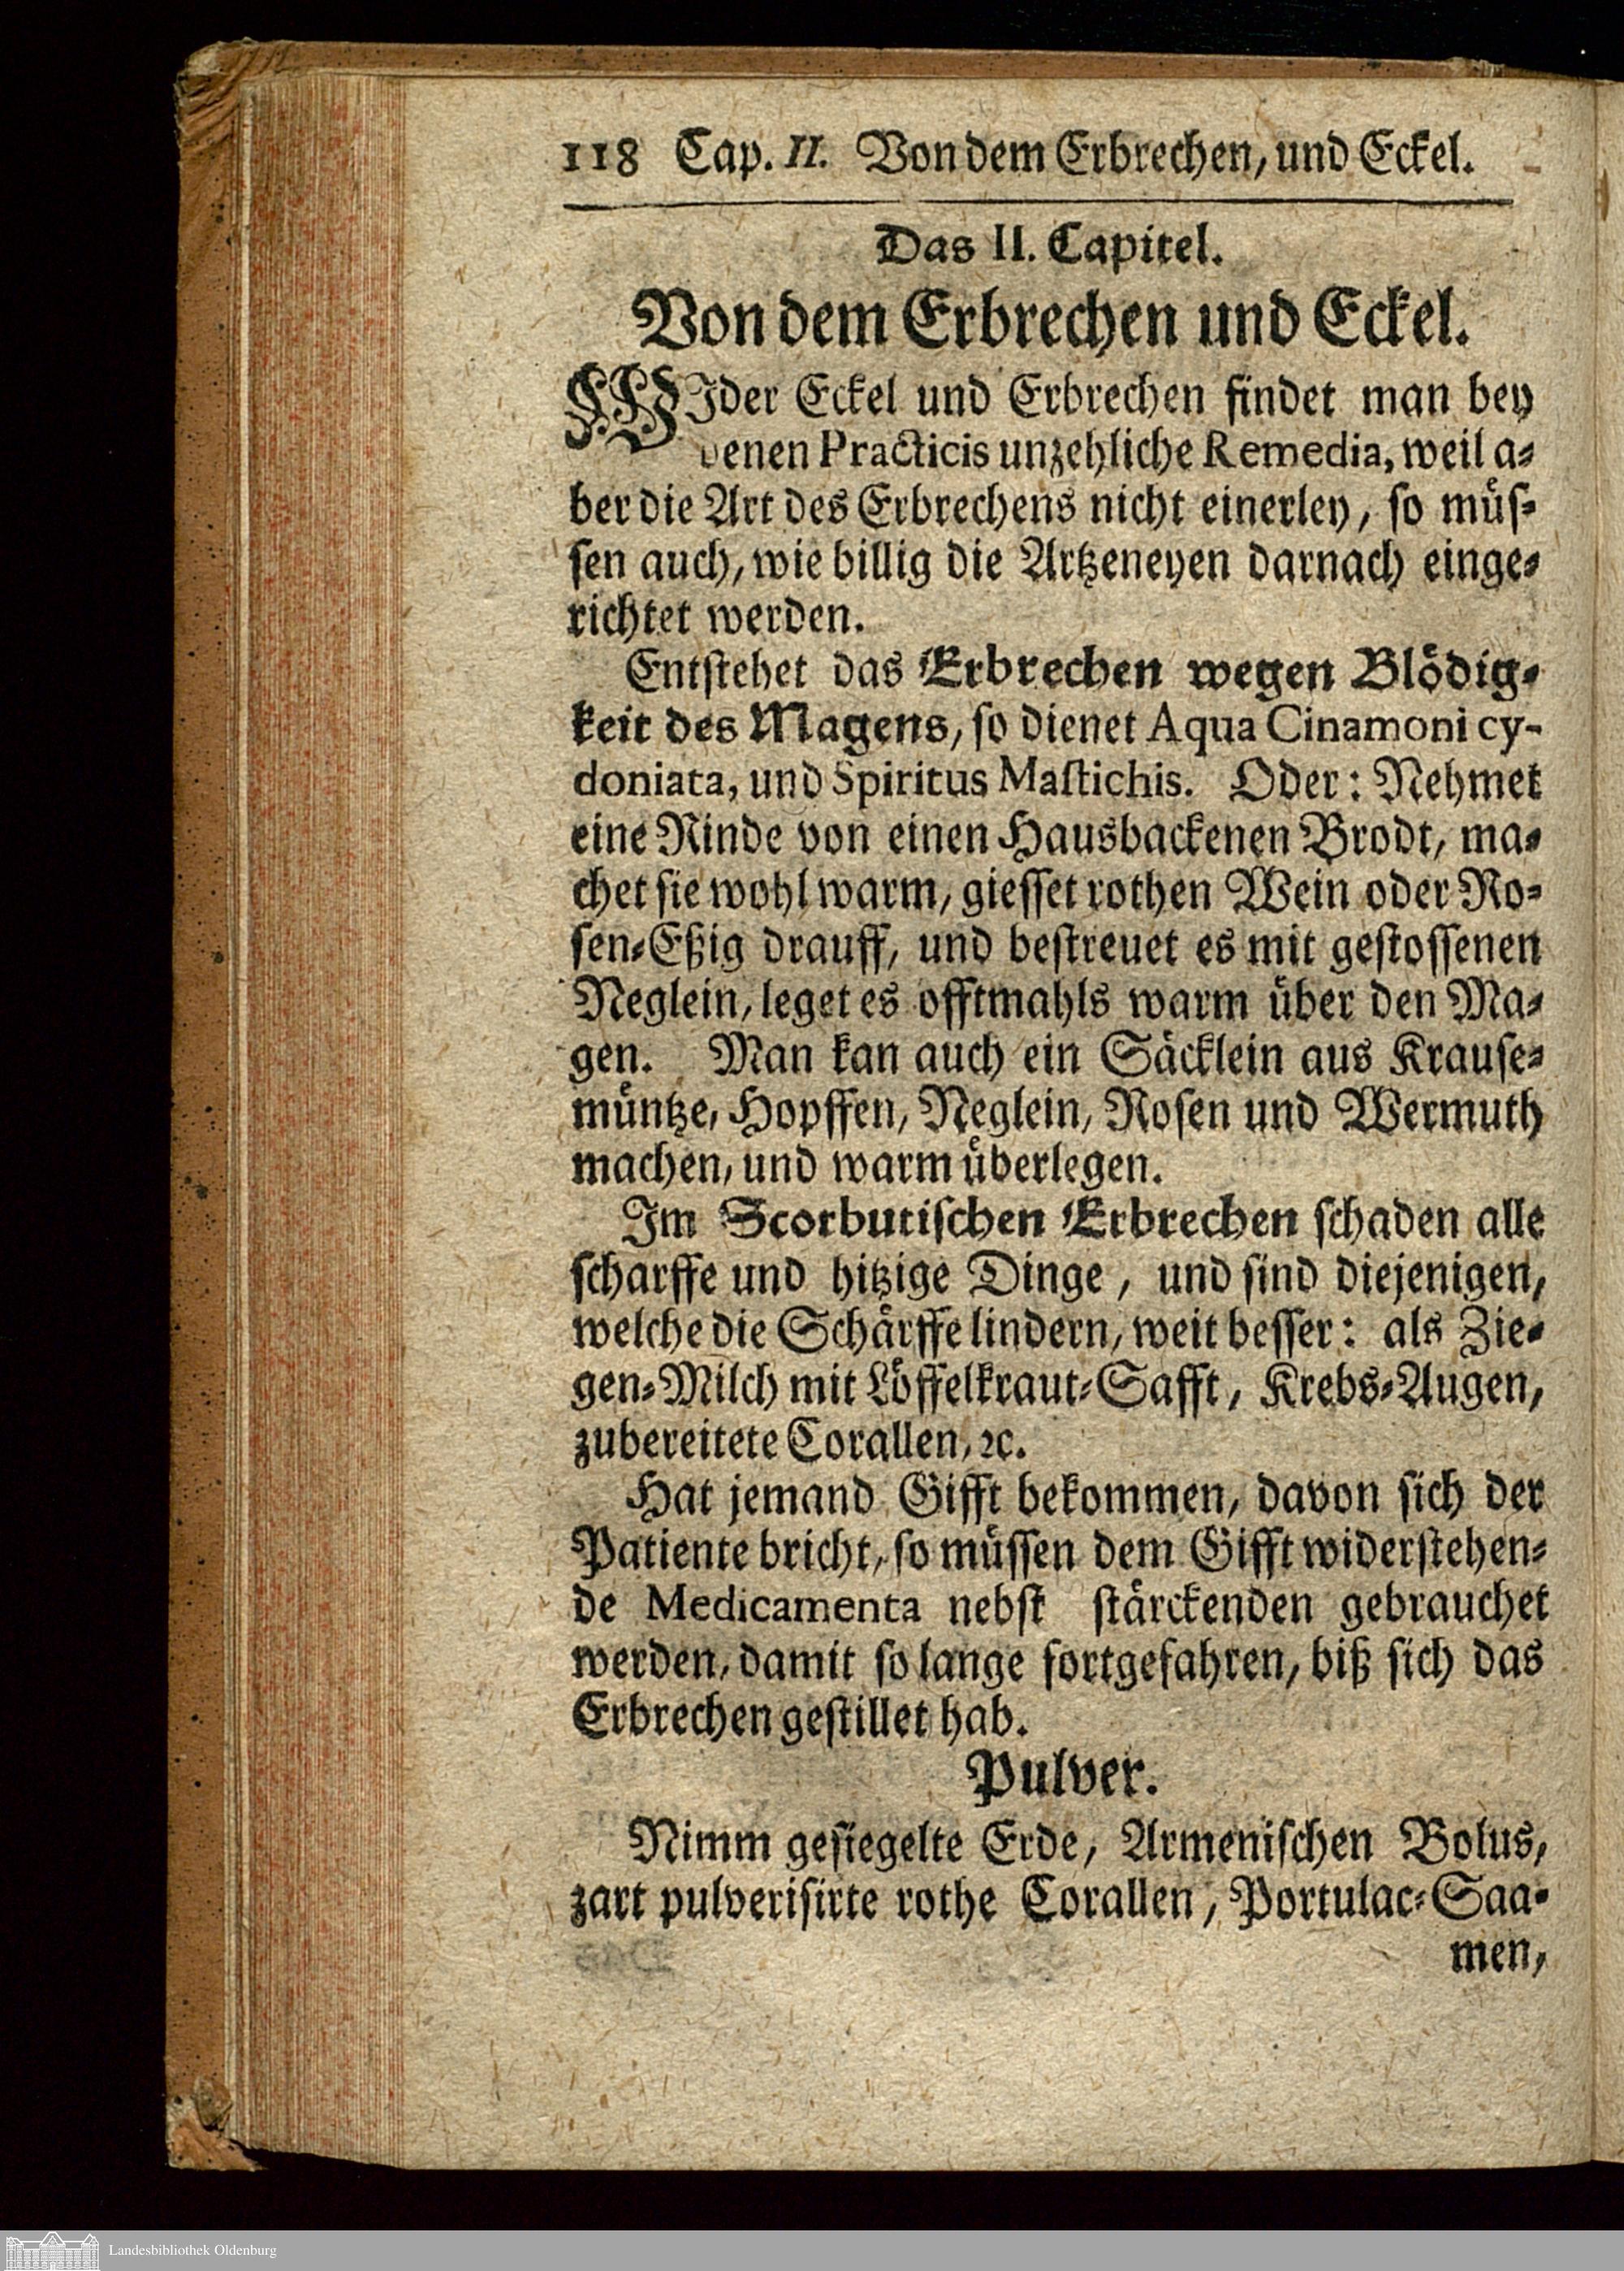 118 Cap. II. Von dem Erbrechen, und Eckel.
Das II. Capitel.
Von dem Erbrechen und Eckel.
WIder Eckel und Erbrechen findet man bey
denen Practicis unzehliche Remedia, weil a-
ber die Art des Erbrechens nicht einerley, so müs-
sen auch, wie billig die Artzeneyen darnach einge-
richtet werden.
Entstehet das Erbrechen wegen Blödig-
keit des Magens, so dienet Aqua Cinamoni cy-
doniata, und Spiritus Mastichis. Oder: Nehmet
eine Rinde von einen Hausbackenen Brodt, ma-
chet sie wohl warm, giesset rothen Wein oder Ro-
sen-Eßig drauff, und bestreuet es mit gestossenen
Neglein, leget es offtmahls warm über den Ma-
gen. Man kan auch ein Säcklein aus Krause-
müntze, Hopffen, Neglein, Rosen und Wermuth
machen, und warm überlegen.
Im Scorbutischen Erbrechen schaden alle
scharffe und hitzige Dinge, und sind diejenigen,
welche die Schärffe lindern, weit besser: als Zie-
gen-Milch mit Löffelkraut-Safft, Krebs-Augen,
zubereitete Corallen, ꝛc.
Hat jemand Gifft bekommen, davon sich der
Patiente bricht, so müssen dem Gifft widerstehen-
de Medicamenta nebst stärckenden gebrauchet
werden, damit so lange fortgefahren, biß sich das
Erbrechen gestillet hab.
Pulver.
Nimm gesiegelte Erde, Armenischen Bolus,
zart pulverisirte rothe Corallen, Portulac-Saa-
men,
Landesbibliothek Oldenburg